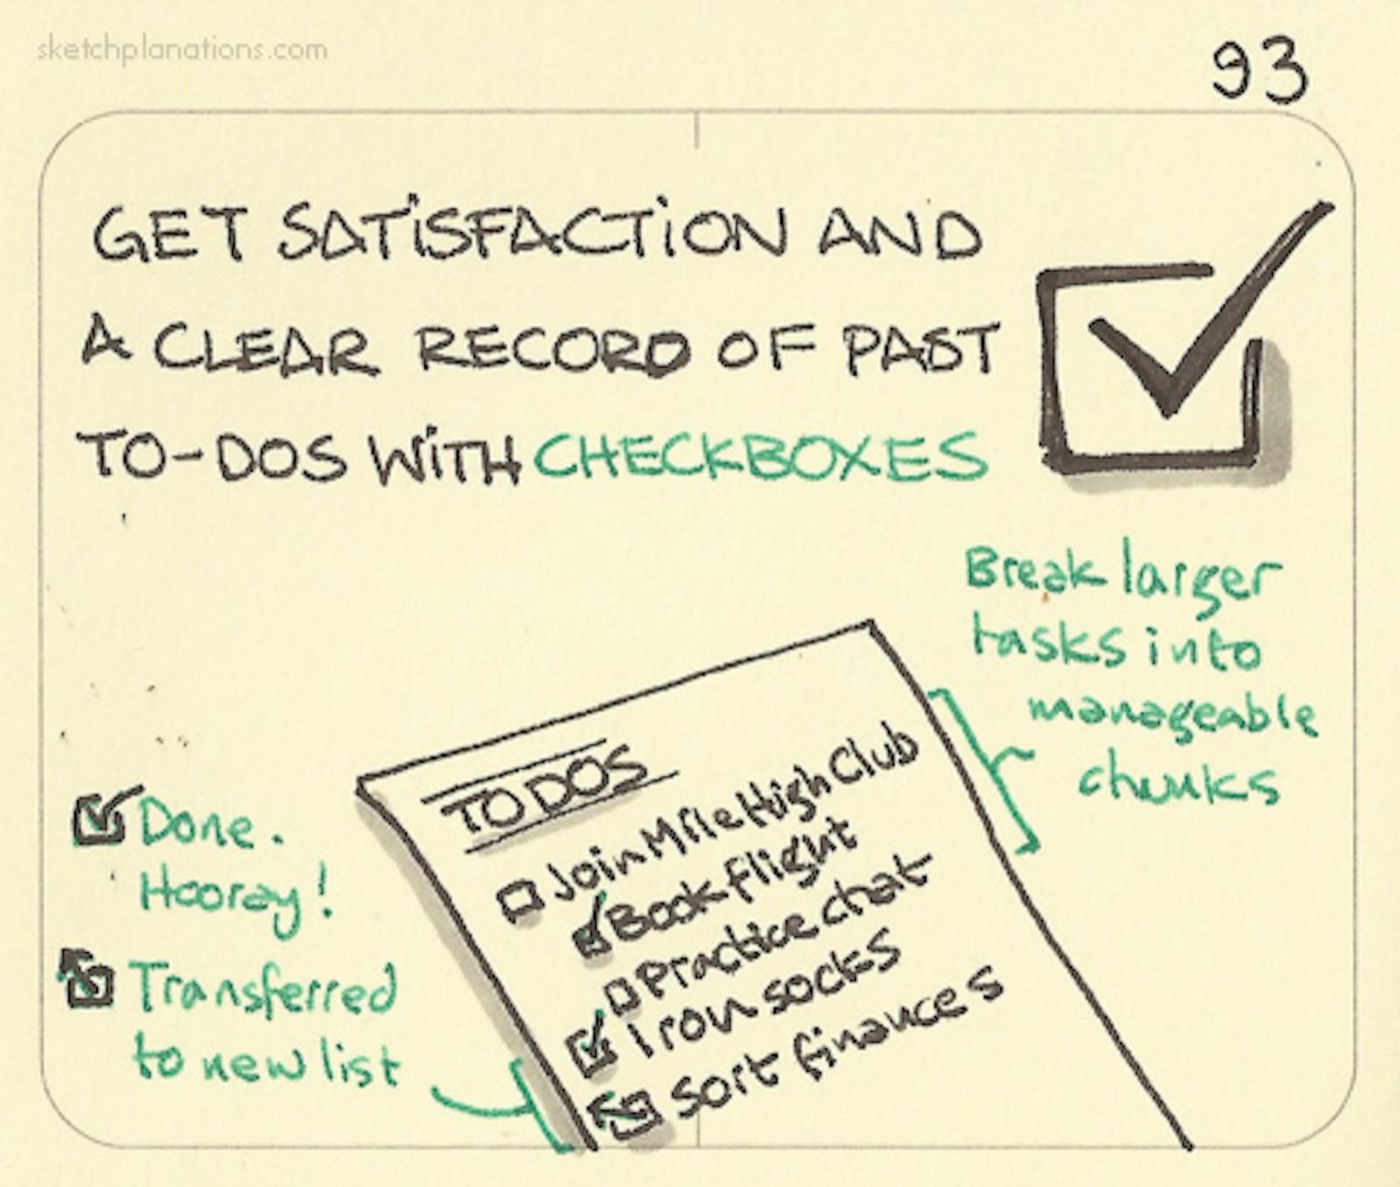 sketchplanations.com
93
GET SATiSFACTiON AND
A CLEAR RECORD OF PAST
TO-DOS WiTH CHECKBOXES
Break larger
tasks into
manageable
chunks
TO DOS
Join Mile High Club
Book flight
Practice chat
Iron socks
Sort finances
Done.
Hooray!
Transferred
to new list